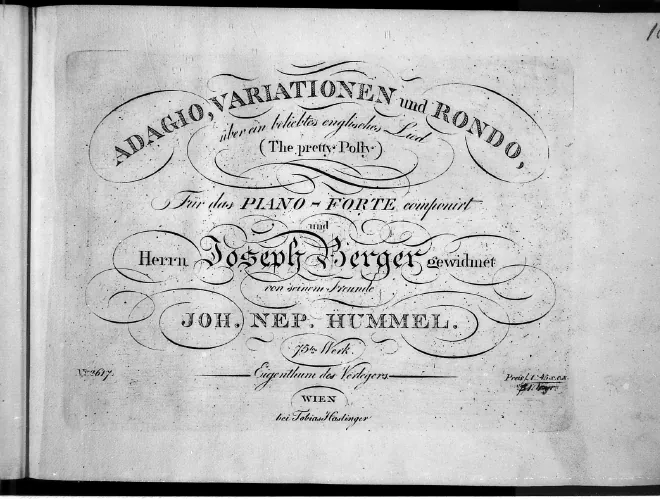 ADAGIO, VARIATIONEN und RONDO,
über ein beliebtes englisches Lied
(The pretty Polly)
Für das PIANO-FORTE componirt
und
Herrn Joseph Berger gewidmet
von seinem Freunde
JOH. NEP. HUMMEL.
75tes Werk.
No. 2617.
Eigenthum des Verlegers
WIEN
bei Tobias Haslinger